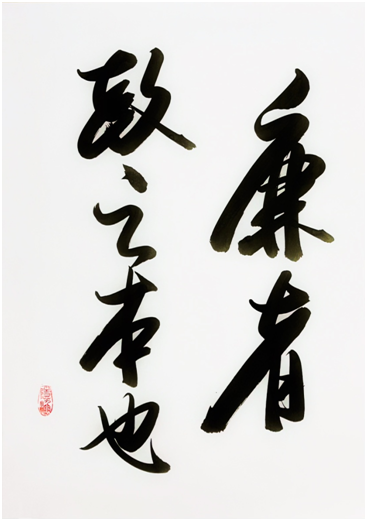 廉者
政之本也